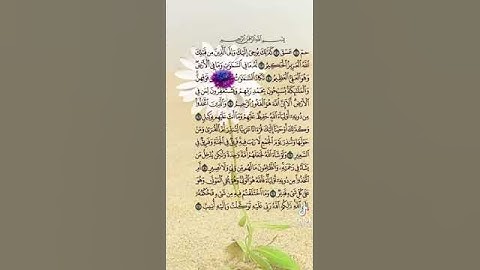 بِسْمِ ٱللَّهِ ٱلرَّحْمَٰنِ ٱلرَّحِيمِ
حمٓ ۝١ عٓسٓقٓ ۝٢ كَذَٰلِكَ يُوحِىٓ إِلَيْكَ وَإِلَى ٱلَّذِينَ مِن قَبْلِكَ
ٱللَّهُ ٱلْعَزِيزُ ٱلْحَكِيمُ ۝٣ لَهُۥ مَا فِى ٱلسَّمَٰوَٰتِ وَمَا فِى ٱلْأَرْضِ
وَهُوَ ٱلْعَلِىُّ ٱلْعَظِيمُ ۝٤ تَكَادُ ٱلسَّمَٰوَٰتُ فَوْقِهِنَّ
وَٱلْمَلَٰٓئِكَةُ يُسَبِّحُونَ بِحَمْدِ رَبِّهِمْ وَيَسْتَغْفِرُونَ لِمَن فِى
ٱلْأَرْضِ أَلَآ إِنَّ ٱللَّهَ هُوَ ٱلْغَفُورُ ٱلرَّحِيمُ ۝٥ وَٱلَّذِينَ ٱتَّخَذُوا۟
مِن دُونِهِۦٓ أَوْلِيَآءَ ٱللَّهُ حَفِيظٌ عَلَيْهِمْ وَمَآ أَنتَ عَلَيْهِم بِوَكِيلٍ ۝٦
وَكَذَٰلِكَ أَوْحَيْنَآ إِلَيْكَ قُرْءَانًا عَرَبِيًّا لِّتُنذِرَ أُمَّ ٱلْقُرَىٰ وَمَنْ
حَوْلَهَا وَتُنذِرَ يَوْمَ ٱلْجَمْعِ لَا رَيْبَ فِيهِ فَرِيقٌ فِى ٱلْجَنَّةِ وَفَرِيقٌ فِى
ٱلسَّعِيرِ ۝٧ وَلَوْ شَآءَ ٱللَّهُ لَجَعَلَهُمْ أُمَّةً وَٰحِدَةً وَلَٰكِن يُدْخِلُ مَن
يَشَآءُ فِى رَحْمَتِهِۦ وَٱلظَّٰلِمُونَ مَا لَهُم مِّن وَلِىٍّ وَلَا نَصِيرٍ ۝٨
أَمِ ٱتَّخَذُوا۟ مِن دُونِهِۦٓ أَوْلِيَآءَ فَٱللَّهُ هُوَ ٱلْوَلِىُّ وَهُوَ يُحْىِ ٱلْمَوْتَىٰ وَهُوَ
عَلَىٰ كُلِّ شَىْءٍ قَدِيرٌ ۝٩ وَمَا ٱخْتَلَفْتُمْ فِيهِ مِن شَىْءٍ فَحُكْمُهُۥٓ
إِلَى ٱللَّهِ ذَٰلِكُمُ ٱللَّهُ رَبِّى عَلَيْهِ تَوَكَّلْتُ وَإِلَيْهِ أُنِيبُ ۝١٠